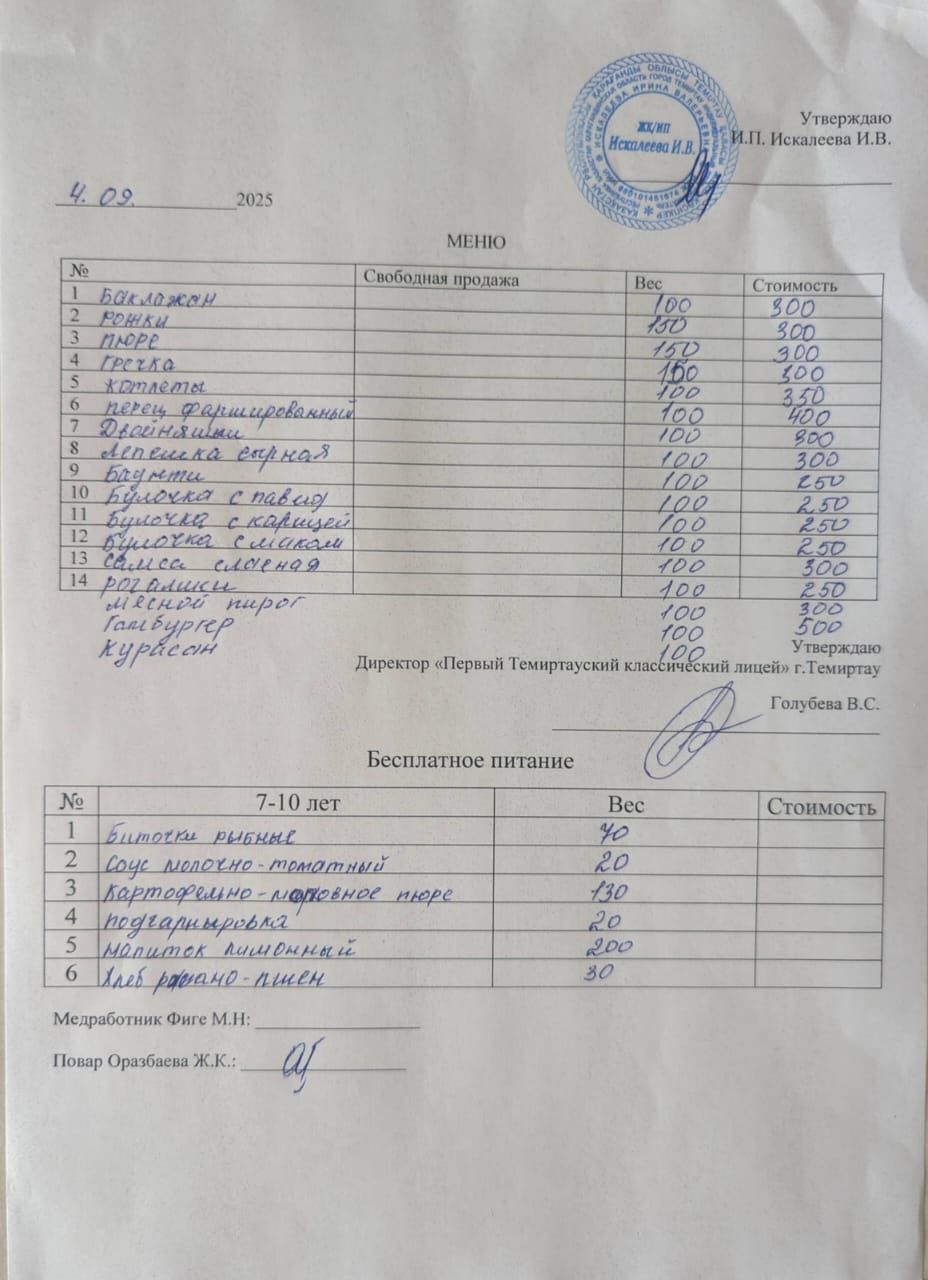 Утверждаю
И.П. Искалеева И.В.
ЖК/ИП
Искалеева И.В.
4. 09. 2025
МЕНЮ
№ Свободная продажа Вес Стоимость
1 Баклажан 100 300
2 рожки 150 300
3 пюре 150 300
4 гречка 150 300
5 котлеты 100 350
6 перец фаршированный 100 400
7 Двойняшки 100 300
8 Лепешка сырная 100 300
9 Баунти 100 250
10 Булочка с павид 100 250
11 Булочка с карицей 100 250
12 Булочка с маком 100 250
13 Самса слаеная 100 300
14 рогалики 100 250
мясной пирог 100 300
Гамбургер 100 500
Курасан 100
Утверждаю
Директор «Первый Темиртауский классический лицей» г.Темиртау
Голубева В.С.
Бесплатное питание
№ 7-10 лет Вес Стоимость
1 Биточки рыбные 70
2 Соус молочно-томатный 20
3 Картофельно-морковное пюре 130
4 подгарнировка 20
5 напиток лимонный 200
6 Хлеб ржано-пшен 30
Медработник Фиге М.Н:
Повар Оразбаева Ж.К.: